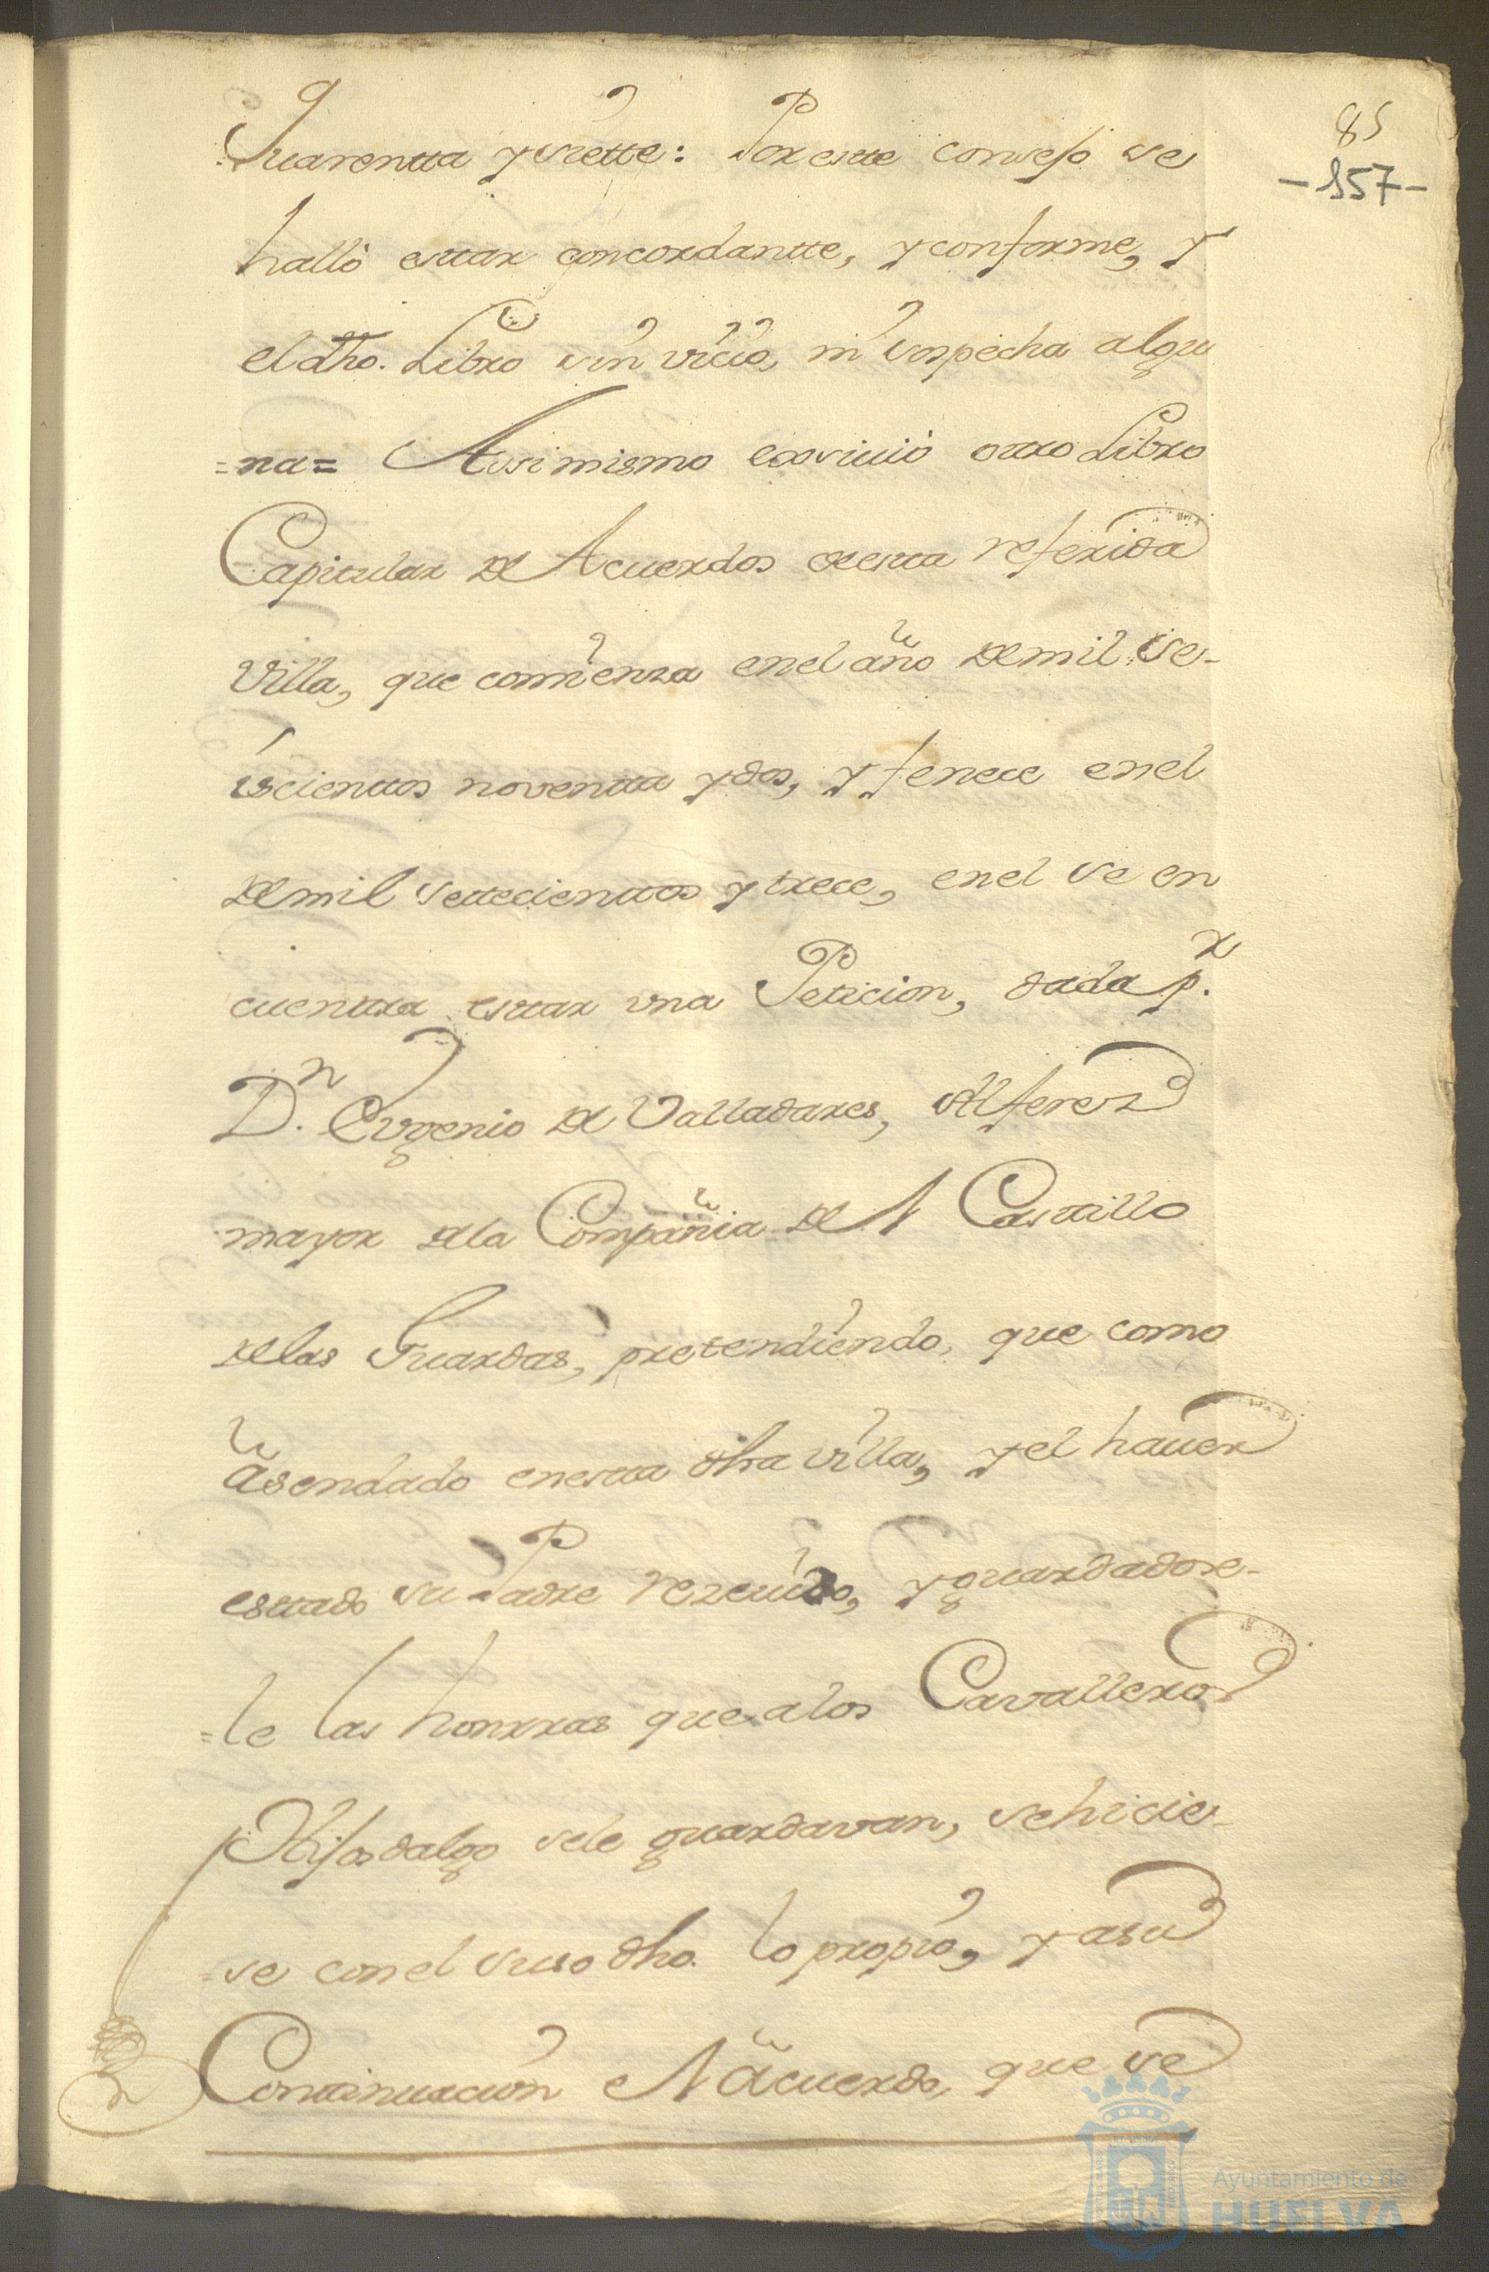 85
-157-
Quarentta y siette: Por este consejo se
halló estar concordantte, y conforme, y
el dho. Libro sin vicio, ni sospecha algu
=na= Assimismo exsivió otro Libro
Capitular de Acuerdos de esta referida
Villa, que comienza en el año de mil se-
iscientos noventta y dos, y fenece en el
de mil settecienttos y trece, en el se en
cuentra estar vna Peticion, dada pr.
Dn. Eugenio de Valladares, Alferez
mayor de la Compañia del Castillo
de las Guardas, pretendiendo, que como
asendado en esta dha villa, y el hauer
estado su Padre rezeuido, y guardadose-
=le las honrras que a los Cavalleros
Hijosdalgo se le guardavan, se hicie-
=se con el susodho. lo propio, y a su
Continuacion el acuerdo, que se
Ayuntamiento de
HUELVA